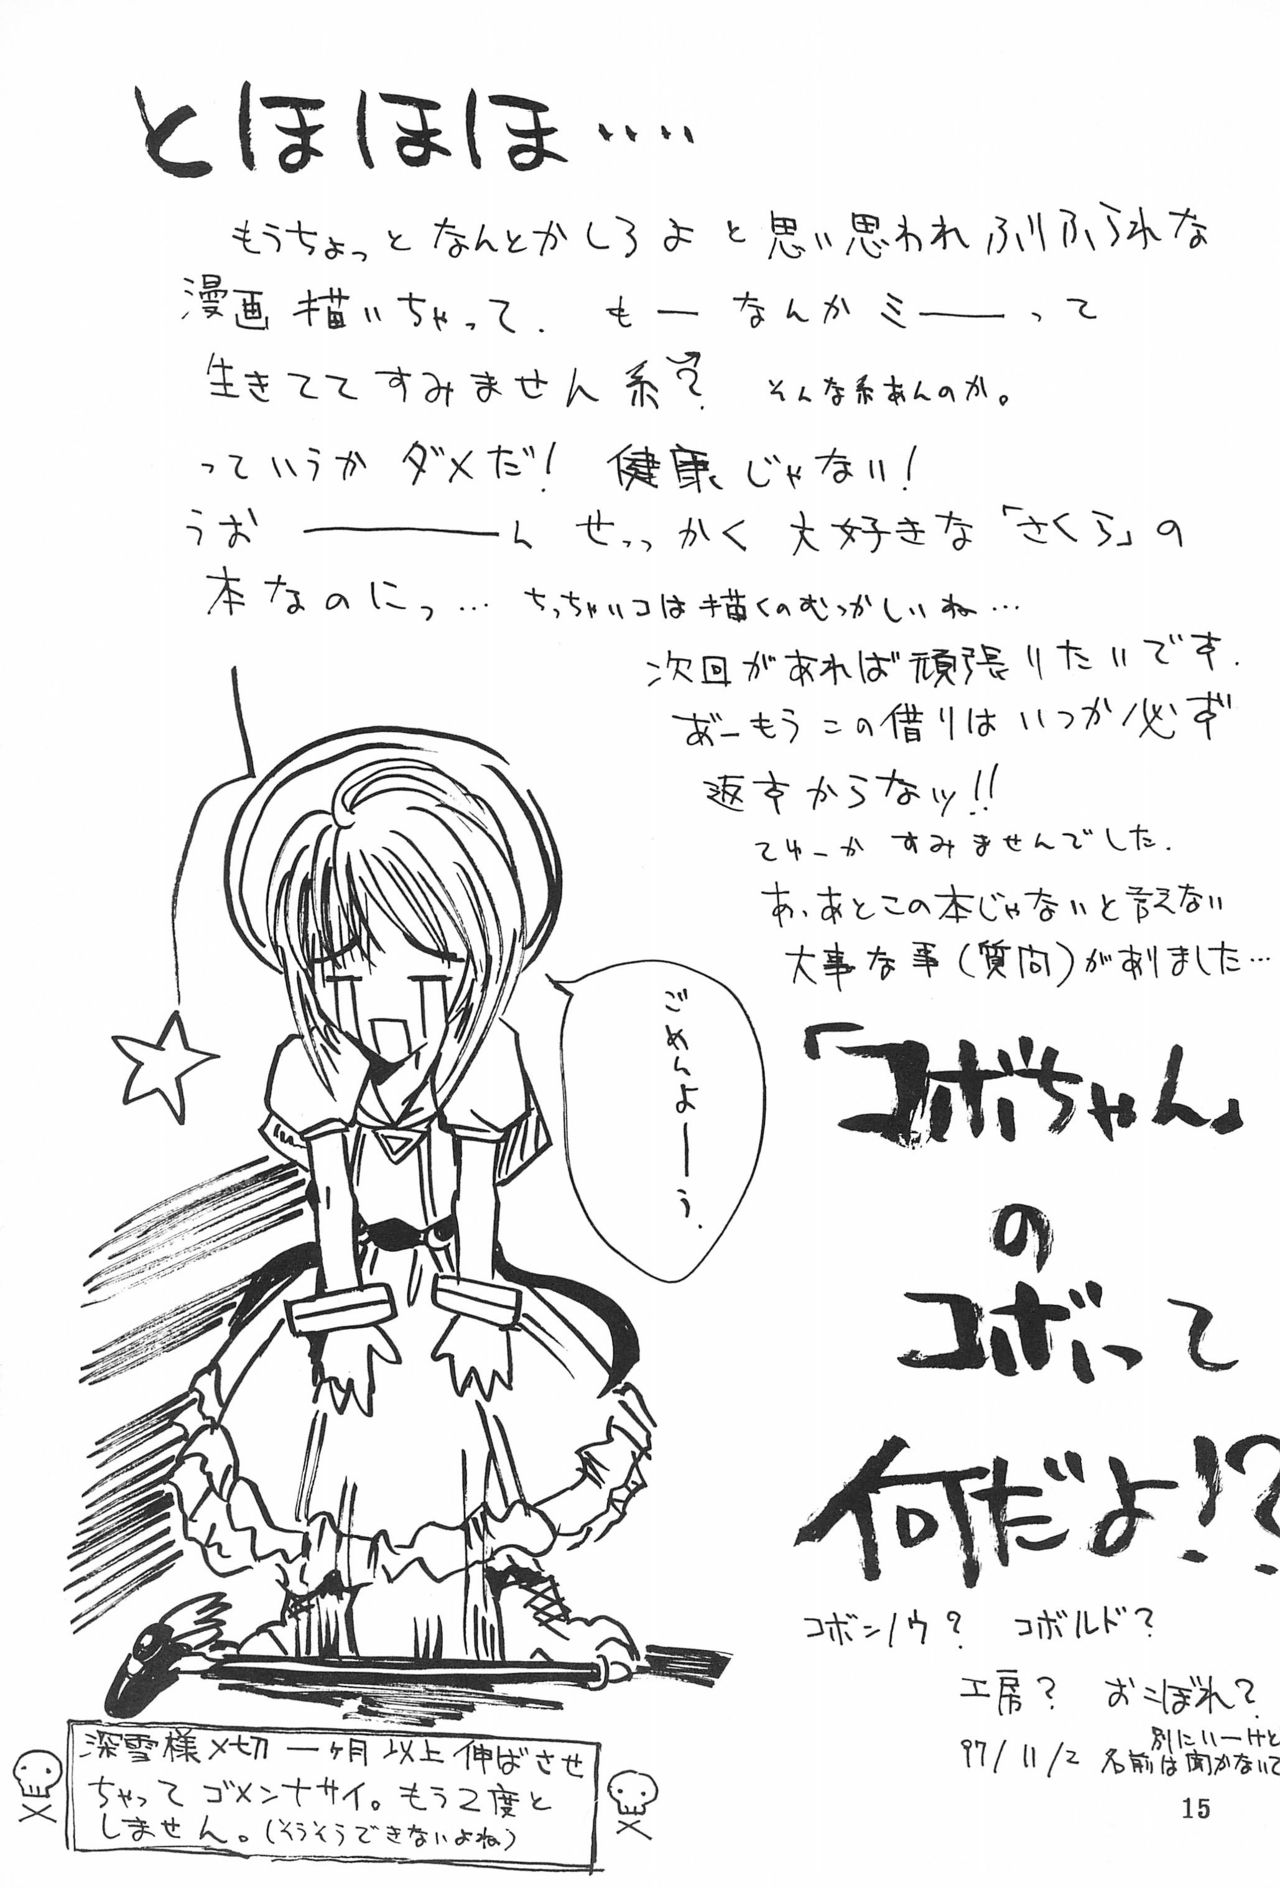 とほほほ‥‥
もうちょっとなんとかしろよと思い思われふりふられな
漫画描いちゃって. もーなんかミ――って
生きててすみません系? そんな系あんのか。
っていうかダメだ! 健康じゃない!
うお――――ん せっっかく大好きな「さくら」の
本なのにっ… ちっちゃいコは描くのむつかしいね…
次回があれば頑張りたいです.
あーもうこの借りはいつか必ず
返すからなッ!!
てゆーかすみませんでした.
あ、あとこの本じゃないと言えない
大事な事(質問)がありました…
「コボちゃん」
の
コボって
何だよ!?
コボンノウ? コボルド?
工房? おこぼれ?
別にいーけど
97/11/2 名前は聞かないで
ごめんよーう.
深雪様〆切一ヶ月以上伸ばさせ
ちゃってゴメンナサイ。もう2度と
しません。(そうそうできないよね)
15